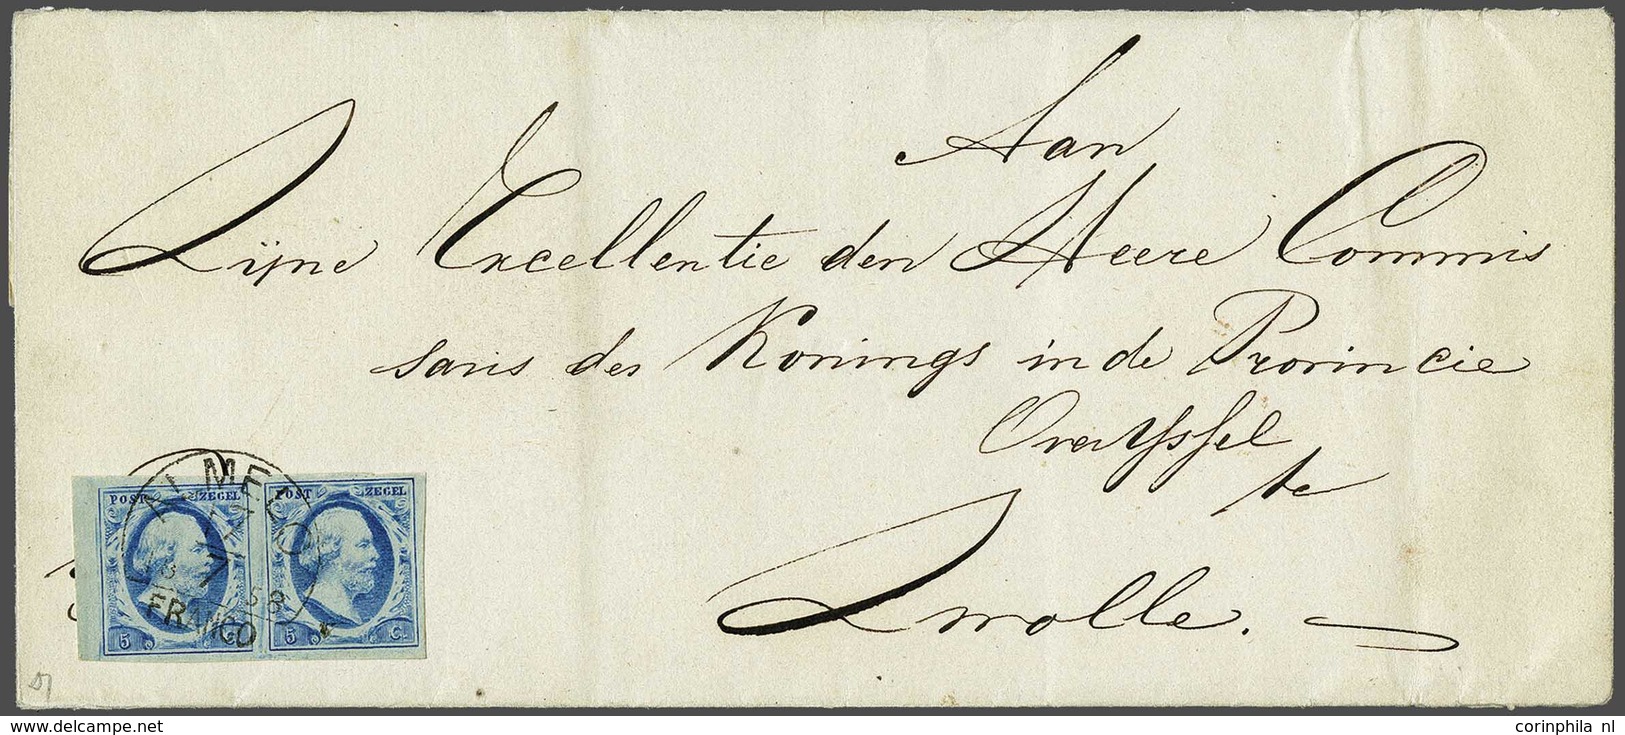 Aan
Zijne Excellentie den Heere Commis
saris des Konings in de Provincie
Overijssel
te
Zwolle.
POST ZEGEL POST ZEGEL
ALMELO
58
FRANCO
5 5 C.
corinphila nl